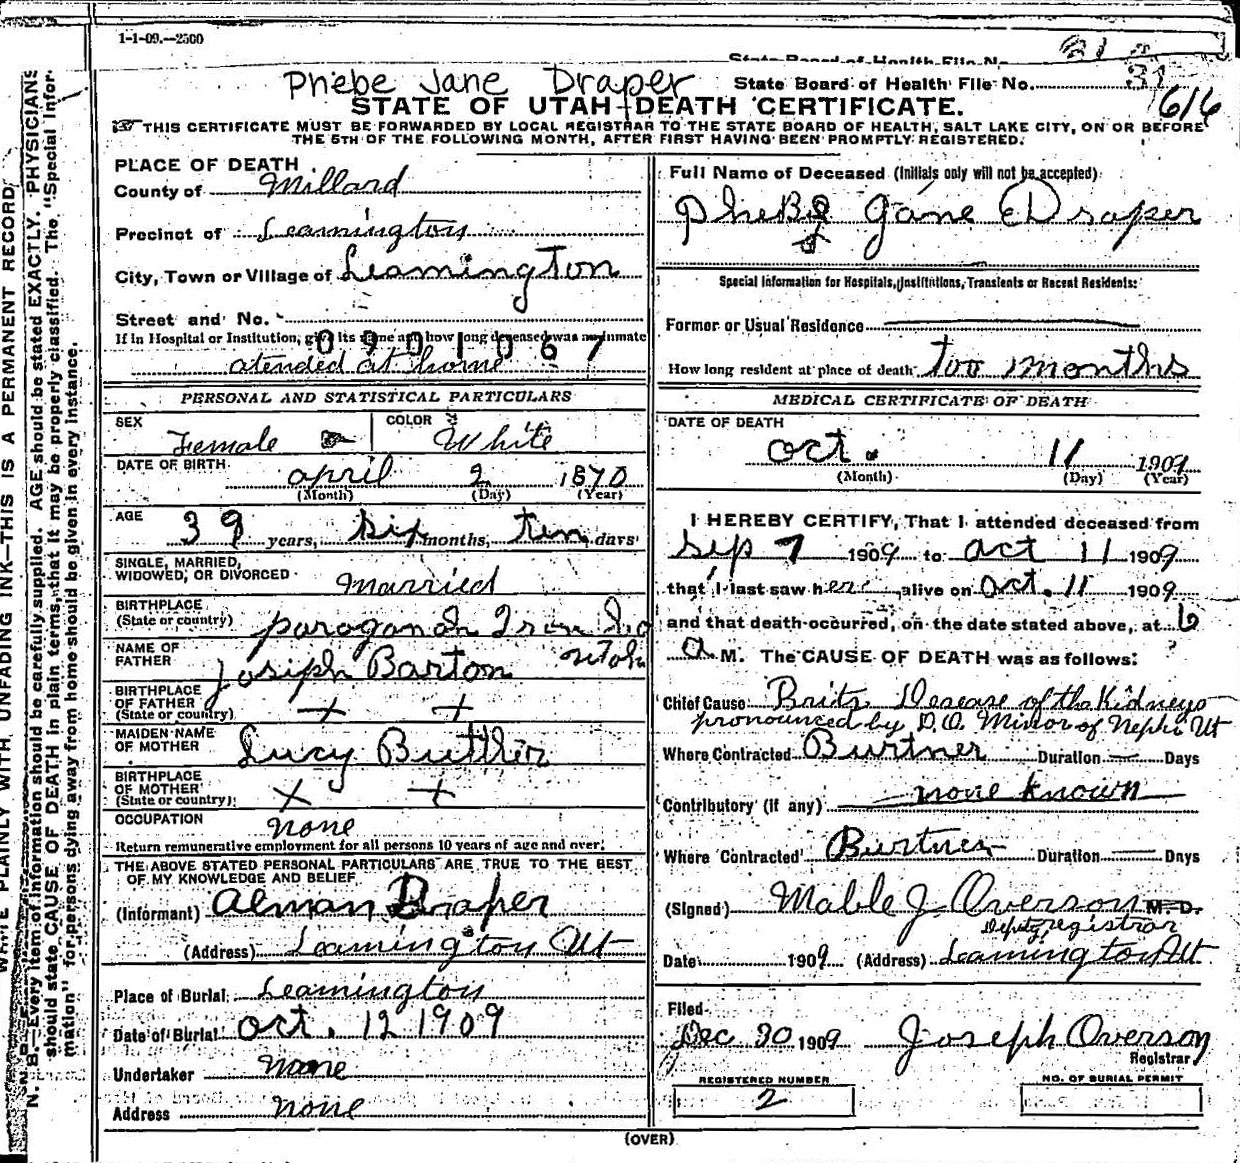 1-1-09.—2500
State Board of Health File No.
Phebe Jane Draper
State Board of Health File No. 31
616
STATE OF UTAH—DEATH CERTIFICATE.
THIS CERTIFICATE MUST BE FORWARDED BY LOCAL REGISTRAR TO THE STATE BOARD OF HEALTH, SALT LAKE CITY, ON OR BEFORE
THE 5TH OF THE FOLLOWING MONTH, AFTER FIRST HAVING BEEN PROMPTLY REGISTERED.
PLACE OF DEATH
County of Millard
Precinct of Leamington
City, Town or Village of Leamington
Street and No.
If in Hospital or Institution, give its name and how long deceased was an inmate
0901067
atended at home
PERSONAL AND STATISTICAL PARTICULARS
SEX Female
COLOR White
DATE OF BIRTH april 2 1870
(Month) (Day) (Year)
AGE 39 years, six months, ten days
SINGLE, MARRIED,
WIDOWED, OR DIVORCED Married
BIRTHPLACE
(State or country) paragonah Iron Co
Utah
NAME OF
FATHER Josiph Barton
BIRTHPLACE
OF FATHER
(State or country) + +
MAIDEN NAME
OF MOTHER Lucy Buttler
BIRTHPLACE
OF MOTHER
(State or country) + +
OCCUPATION none
Return remunerative employment for all persons 10 years of age and over.
THE ABOVE STATED PERSONAL PARTICULARS ARE TRUE TO THE BEST
OF MY KNOWLEDGE AND BELIEF
(Informant) Alman Draper
(Address) Leamington Ut
Place of Burial Leamington
Date of Burial oct. 12 1909
Undertaker none
Address none
Full Name of Deceased (Initials only will not be accepted)
Phebe Jane Draper
Special Information for Hospitals, Institutions, Transients or Recent Residents:
Former or Usual Residence
How long resident at place of death too months
MEDICAL CERTIFICATE OF DEATH
DATE OF DEATH
oct. 11 1909
(Month) (Day) (Year)
I HEREBY CERTIFY, That I attended deceased from
Sep 7 1909 to oct 11 1909
that I last saw her alive on Oct. 11 1909
and that death occurred, on the date stated above, at 6
a M. The CAUSE OF DEATH was as follows:
Chief Cause Brits Desease of the Kidneys
pronounced by D.O. Minor of Nephi Ut
Where Contracted Burtner Duration — Days
Contributory (if any) none known
Where Contracted Burtner Duration — Days
(Signed) Mable J Overson M. D.
Deputy registrar
Date 1909 (Address) Leamington Ut
Filed
Dec 30 1909 Joseph Overson
Registrar
REGISTERED NUMBER
2
NO. OF BURIAL PERMIT
(OVER)
WRITE PLAINLY WITH UNFADING INK—THIS IS A PERMANENT RECORD.
N. B.—Every item of information should be carefully supplied. AGE should be stated EXACTLY. PHYSICIANS
should state CAUSE OF DEATH in plain terms, that it may be properly classified. The "Special Infor-
mation" for persons dying away from home should be given in every instance.